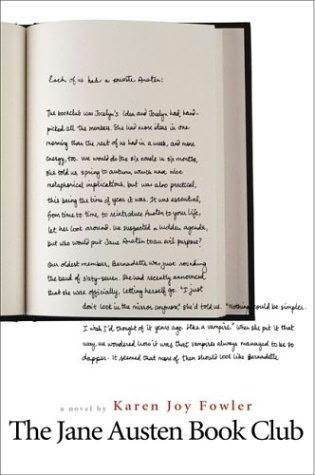 Each of us had a private Austen.
The bookclub was Jocelyn's idea and Jocelyn had hand-
picked all the members. She had more ideas in one
morning than the rest of us had in a week, and more
energy, too. We would do the six novels in six months,
she told us, spring to autumn which had nice
metaphorical implications, but was also practical,
this being the time of year it was. It was essential,
from time to time, to reintroduce Austen to your life,
let her look around. We suspected a hidden agenda,
but who would put Jane Austen to an evil purpose?
Our oldest member, Bernadette was just rounding
the bend of sixty-seven. She had recently announced
that she was, officially, letting herself go. "I just
don't look in the mirror anymore," she'd told us. "Nothing could be simpler.
I wish I'd thought of it years ago. Like a vampire." When she put it that
way, we wondered how it was that vampires always managed to be so
dapper. It seemed that more of them should look like Bernadette.
a novel by Karen Joy Fowler
The Jane Austen Book Club